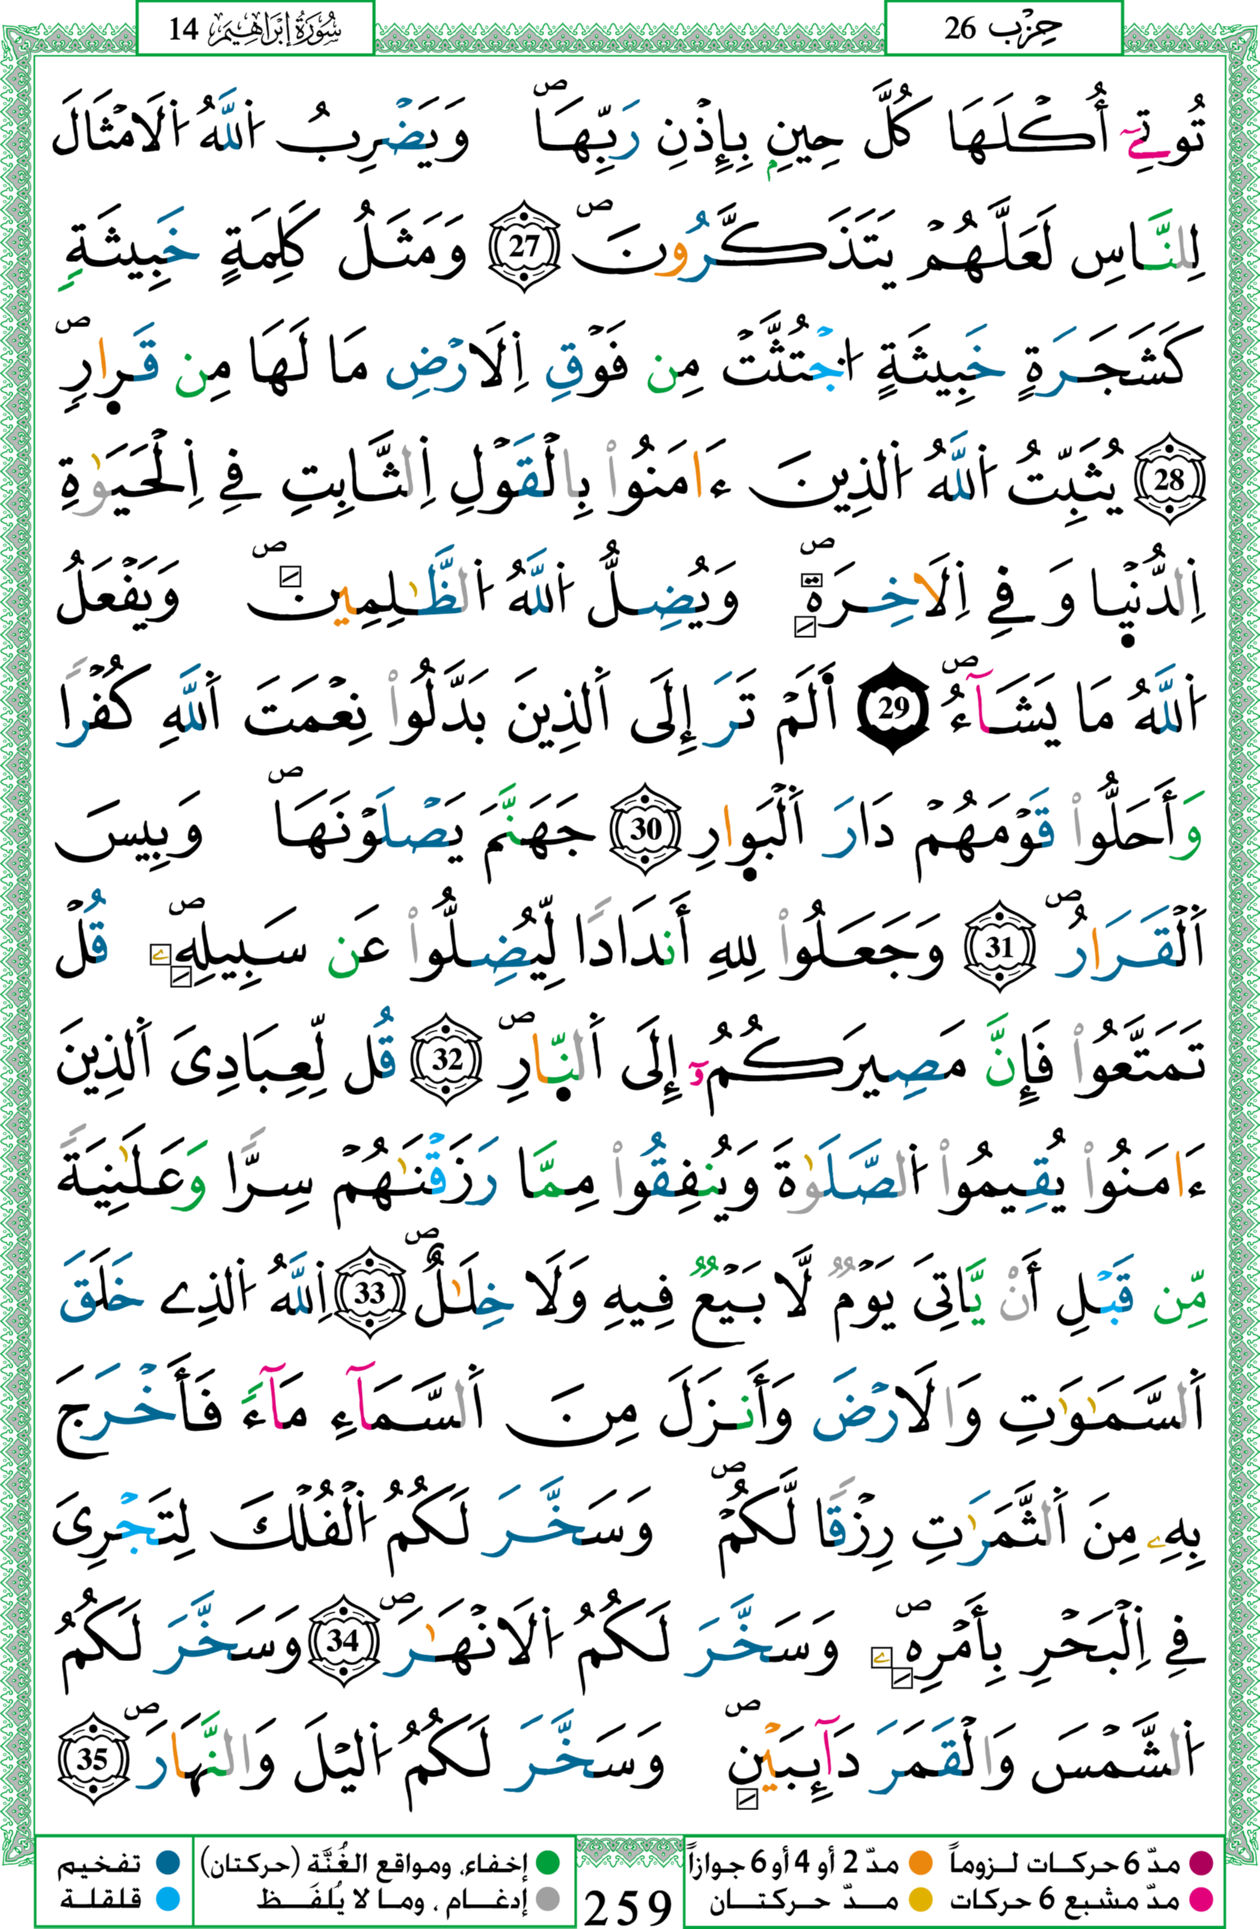 حِزْب 26
سُورَةُ إبْرَاهِيم 14
تُوتِےٓ أُكْلَهَا كُلَّ حِينِۢ بِإِذْنِ رَبِّهَاۖ وَيَضْرِبُ اُ۬للَّهُ اُ۬لَامْثَالَ
لِلنَّاسِ لَعَلَّهُمْ يَتَذَكَّرُونَۖ 27 وَمَثَلُ كَلِمَةٍ خَبِيثَةٖ
كَشَجَرَةٍ خَبِيثَةٍ اُ۟جْتُثَّتْ مِن فَوْقِ اِ۬لَارْضِ مَا لَهَا مِن قَر۪ارٖۖ
28 يُثَبِّتُ اُ۬للَّهُ اُ۬لذِينَ ءَامَنُواْ بِالْقَوْلِ اِ۬لثَّابِتِ فِے اِ۬لْحَيَوٰةِ
اِ۬لدُّنْي۪ا وَفِے اِ۬لَاخِرَةِۖ وَيُضِلُّ اُ۬للَّهُ اُ۬لظَّٰلِمِينَۖ وَيَفْعَلُ
اُ۬للَّهُ مَا يَشَآءُۖ 29 أَلَمْ تَرَ إِلَى اَ۬لذِينَ بَدَّلُواْ نِعْمَتَ اَ۬للَّهِ كُفْراٗ
وَأَحَلُّواْ قَوْمَهُمْ دَارَ اَ۬لْبَو۪ارِ 30 جَهَنَّمَ يَصْلَوْنَهَاۖ وَبِيسَ
اَ۬لْقَرَارُۖ 31 وَجَعَلُواْ لِلهِ أَندَاداٗ لِّيُضِلُّواْ عَن سَبِيلِهِۦۖ قُلْ
تَمَتَّعُواْ فَإِنَّ مَصِيرَكُمُۥٓ إِلَى اَ۬لنّ۪ارِۖ 32 قُل لِّعِبَادِىَ اَ۬لذِينَ
ءَامَنُواْ يُقِيمُواْ اُ۬لصَّلَوٰةَ وَيُنفِقُواْ مِمَّا رَزَقْنَٰهُمْ سِرّاٗ وَعَلَٰنِيَةٗ
مِّن قَبْلِ أَنْ يَّاتِىَ يَوْمٞ لَّا بَيْعٞ فِيهِ وَلَا خِلَٰلٌۖ 33 اِ۬للَّهُ اُ۬لذِے خَلَقَ
اَ۬لسَّمَٰوَٰتِ وَالَارْضَ وَأَنزَلَ مِنَ اَ۬لسَّمَآءِ مَآءٗ فَأَخْرَجَ
بِهِۦ مِنَ اَ۬لثَّمَرَٰتِ رِزْقاٗ لَّكُمْۖ وَسَخَّرَ لَكُمُ اُ۬لْفُلْكَ لِتَجْرِىَ
فِے اِ۬لْبَحْرِ بِأَمْرِهِۦۖ وَسَخَّرَ لَكُمُ اُ۬لَانْهَٰرَۖ 34 وَسَخَّرَ لَكُمُ
اُ۬لشَّمْسَ وَالْقَمَرَ دَآئِبَيْنِۖ وَسَخَّرَ لَكُمُ اُ۬ليْلَ وَالنَّهَارَۖ 35
مدّ 6 حركات لـزوماً مدّ 2 أو 4 أو 6 جوازاً
مدّ مشبع 6 حركات مـدّ حـركتـان
259
إخفاء، ومواقع الغُنَّة (حركتان) تفخيم
إدغـام ، ومـا لا يُلفَـظ قلقلـة